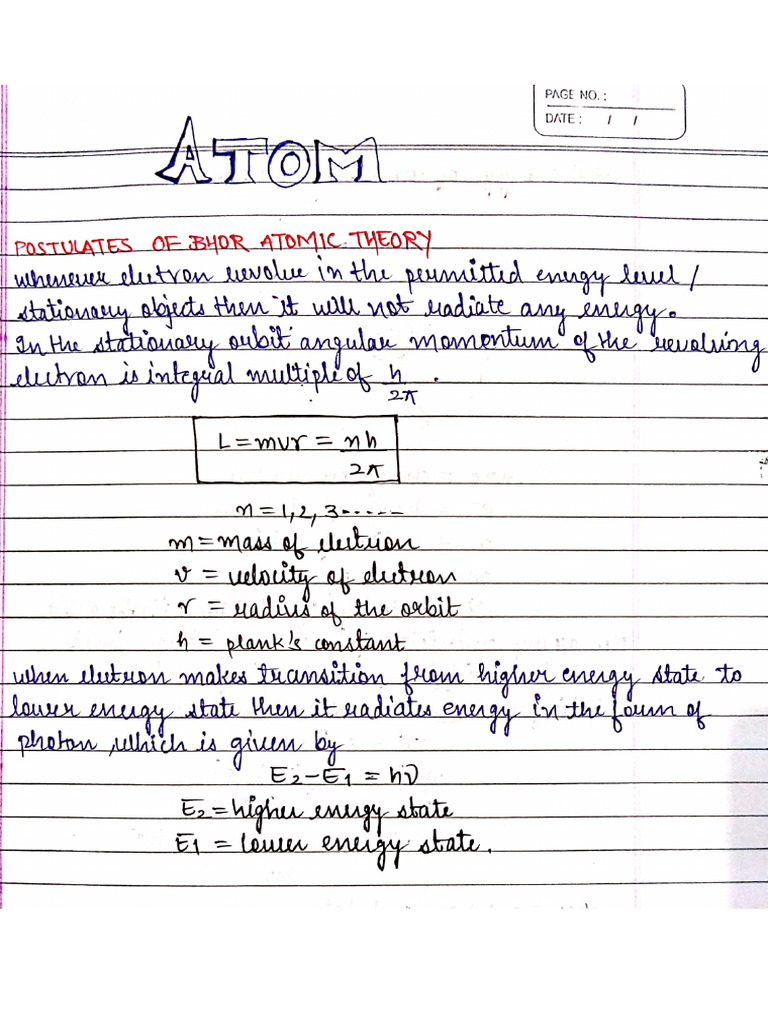 PAGE NO. :
DATE : / /
ATOM
POSTULATES OF BHOR ATOMIC THEORY
whenever electron revolve in the permitted energy level /
stationary objects then it will not radiate any energy.
In the stationary orbit angular momentum of the revolving
electron is integral multiple of h/2π .
L = mvr = nh/2π
n = 1, 2, 3 -----
m = mass of electron
v = velocity of electron
r = radius of the orbit
h = plank's constant
when electron makes transition from higher energy state to
lower energy state then it radiates energy in the form of
photon, which is given by
E2 - E1 = hν
E2 = higher energy state
E1 = lower energy state.